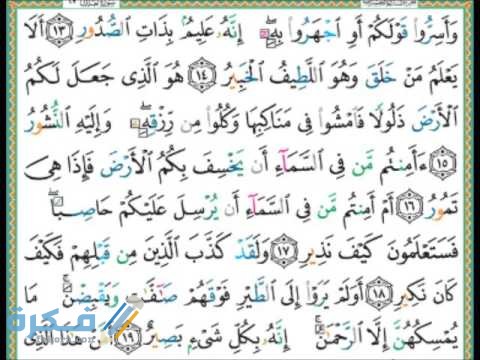 وَأَسِرُّوا۟ قَوْلَكُمْ أَوِ ٱجْهَرُوا۟ بِهِۦٓ ۖ إِنَّهُۥ عَلِيمٌۢ بِذَاتِ ٱلصُّدُورِ ﴿١٣﴾ أَلَا
يَعْلَمُ مَنْ خَلَقَ وَهُوَ ٱللَّطِيفُ ٱلْخَبِيرُ ﴿١٤﴾ هُوَ ٱلَّذِى جَعَلَ لَكُمُ
ٱلْأَرْضَ ذَلُولًا فَٱمْشُوا۟ فِى مَنَاكِبِهَا وَكُلُوا۟ مِن رِّزْقِهِۦ ۖ وَإِلَيْهِ ٱلنُّشُورُ
﴿١٥﴾ ءَأَمِنتُم مَّن فِى ٱلسَّمَآءِ أَن يَخْسِفَ بِكُمُ ٱلْأَرْضَ فَإِذَا هِىَ
تَمُورُ ﴿١٦﴾ أَمْ أَمِنتُم مَّن فِى ٱلسَّمَآءِ أَن يُرْسِلَ عَلَيْكُمْ حَاصِبًا ۖ
فَسَتَعْلَمُونَ كَيْفَ نَذِيرِ ﴿١٧﴾ وَلَقَدْ كَذَّبَ ٱلَّذِينَ مِن قَبْلِهِمْ فَكَيْفَ
كَانَ نَكِيرِ ﴿١٨﴾ أَوَلَمْ يَرَوْا۟ إِلَى ٱلطَّيْرِ فَوْقَهُمْ صَٰٓفَّٰتٍ وَيَقْبِضْنَ ۚ مَا
يُمْسِكُهُنَّ إِلَّا ٱلرَّحْمَٰنُ ۚ إِنَّهُۥ بِكُلِّ شَىْءٍۭ بَصِيرٌ ﴿١٩﴾ أَمَّنْ هَٰذَا ٱلَّذِى
مفكرة